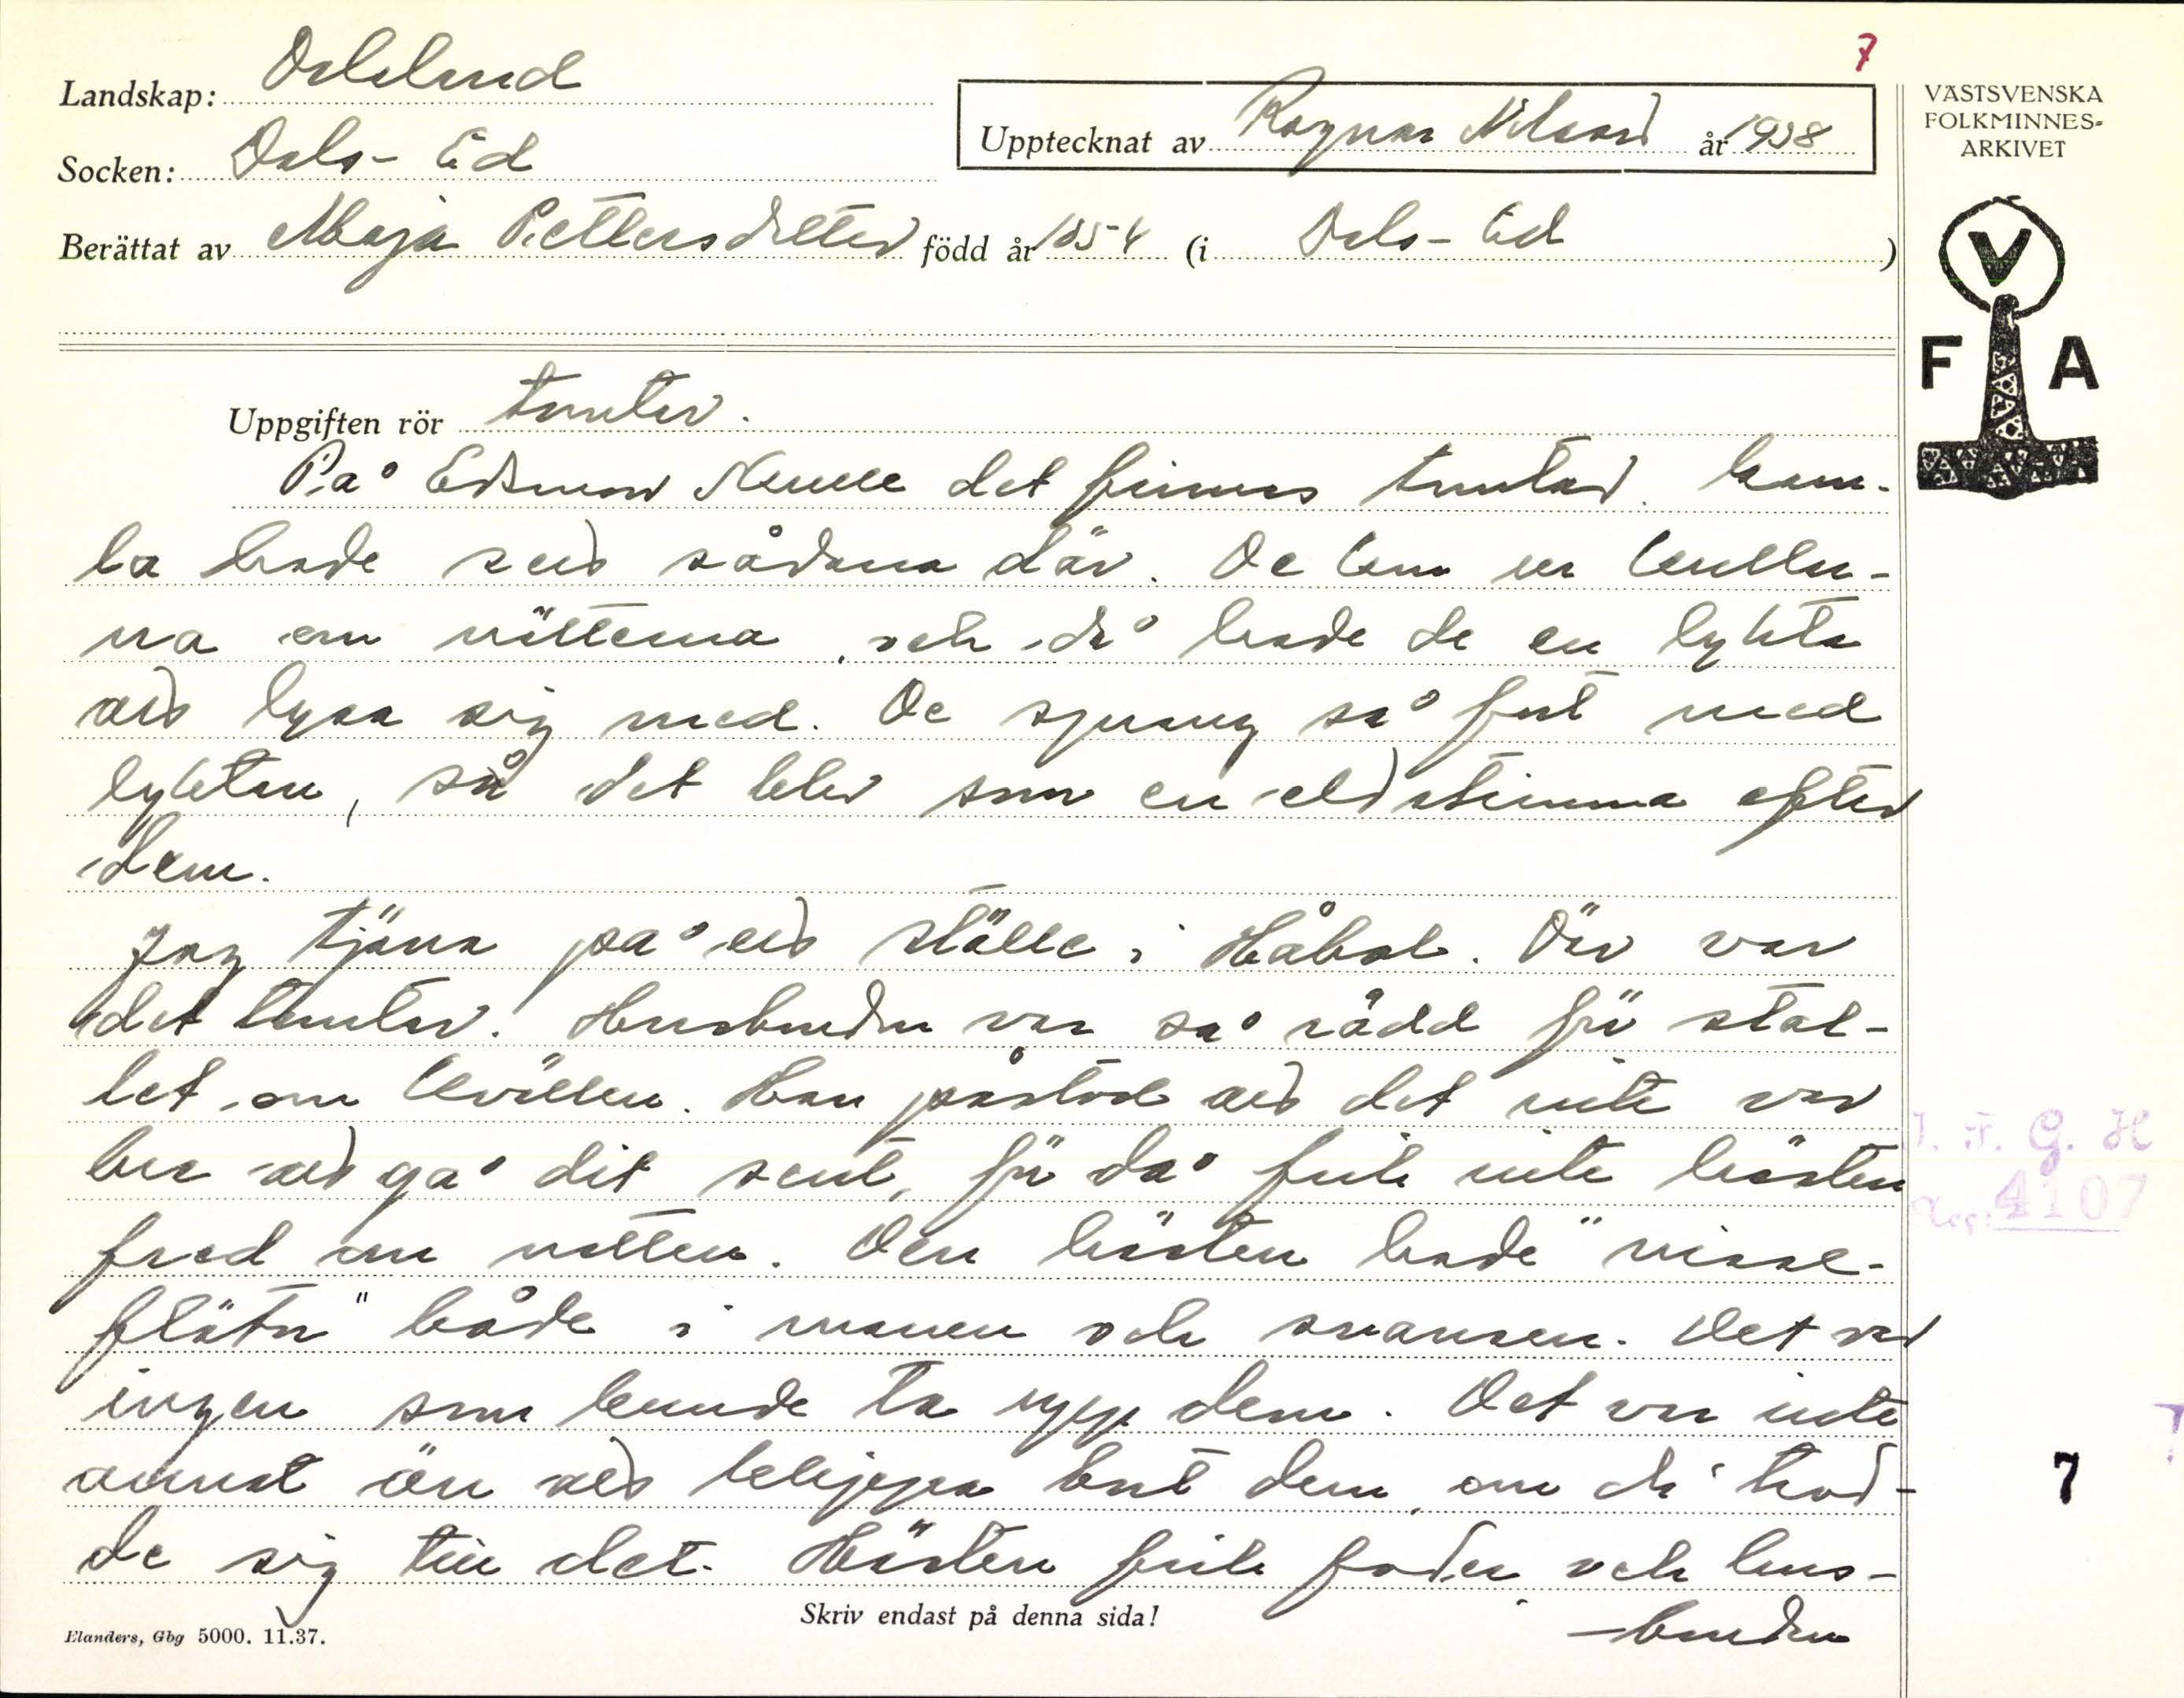 7
Landskap: Dalsland
Upptecknat av Ragnar Nilsson år 1938
Socken: Dals-Ed
Berättat av Maja Pettersdotter född år 1854 (i Dals-Ed)
VÄSTSVENSKA
FOLKMINNES-
ARKIVET
V
F A
Uppgiften rör tomtar.
På Edsmon skulle det finnas tomtar. Gam-
la hade sett sådana där. De kom ut kullar-
na om nätterna, och då hade de en lykta
att lysa sig med. De sprang så fort med
lyktan, så det blev som en eldstrimma efter
dem.
Jag tjäna på ett ställe i Håbol. Där var
det tomtar. Husbonden var så rädd för stal-
let om kvällen. Han påstod att det inte var
bra att gå dit sent, för då fick inte hästen
fred om natten. Den hästen hade "nisse-
flätor" både i manen och svansen. Det var
ingen som kunde ta upp dem. Det var inte
annat än att klippa bort dem, om di trod-
de sig till det. Hästen fick foder och hus-
-bonden
I. F. G. H
Acc: 4107
7
Skriv endast på denna sida!
Elanders, Gbg 5000. 11.37.